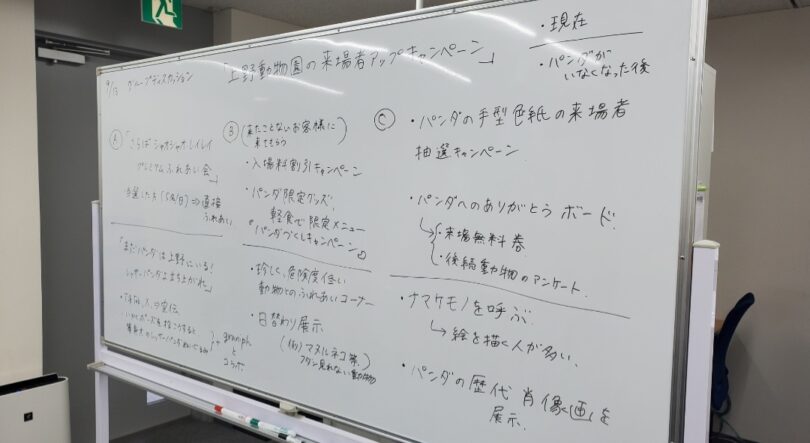 9/13 グループディスカッション
「上野動物園の来場者アップキャンペーン」
・現在
・パンダが
いなくなった後
Ⓐ「さらばシャオシャオレイレイ
プレミアムふれあい会」
当選した方(5名/日)⇒直接
ふれあい
「まだパンダは上野にいる!
レッサーパンダよ立ち上がれ」
・
宣伝
+ graniph
と
コラボ
Ⓑ(来たことないお客様に
来てもらう
・入場料割引キャンペーン
・パンダ限定グッズ、
軽食で限定メニュー
パンダづくしキャンペーン
・珍しく、危険度低い
動物とのふれあいコーナー
・日替わり展示
(例)マヌルネコ等、
フダン見れない動物
Ⓒ・パンダの手型色紙の来場者
抽選キャンペーン
・パンダへのありがとうボード、
→・来場無料券
・後続動物のアンケート、
・ナマケモノを呼ぶ、
→絵を描く人が多い、
・パンダの歴代肖像画を
展示、